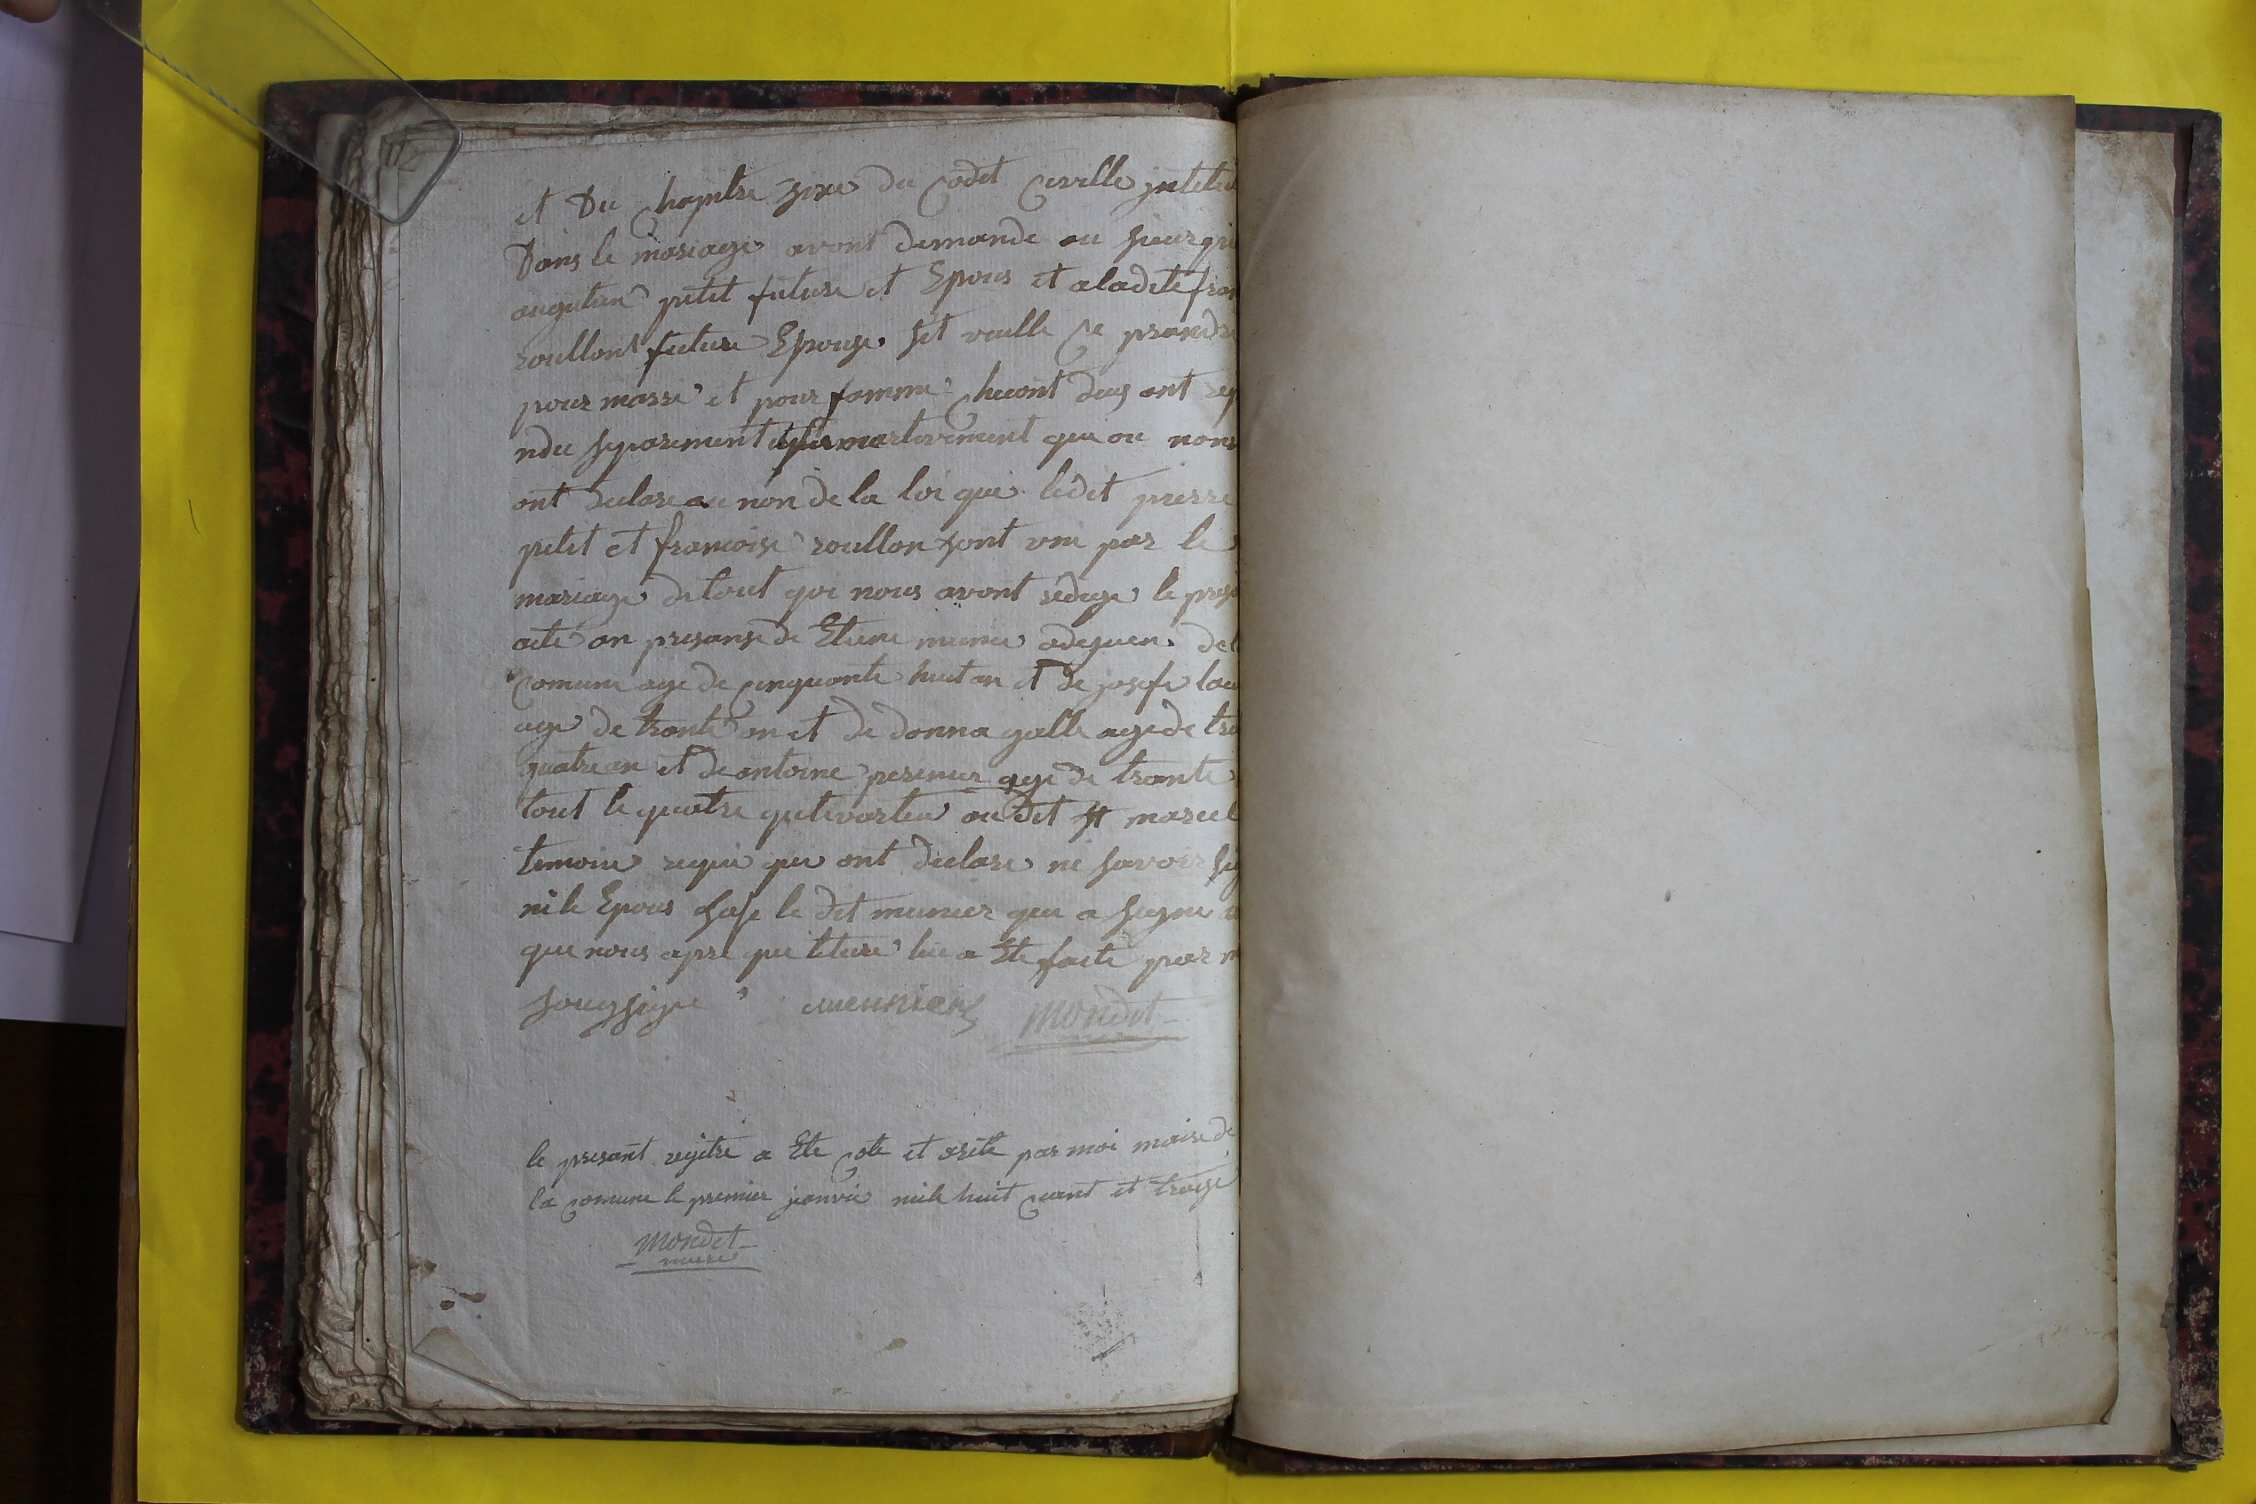 et Du chapitre sixe du codet civille jntetul
Dans le mariage avont demande au sieur
augustin petit future et Epous et a ladite fran
roullont future Epouse. sit veulle ce prandre
pour marri et pour famme chucont deus ont rep
ndu separement que ou nous
ont declare au non de la loi que ledit pierre
petit et francoise roullon sont uni par le
mariage de tout qoi nous avont redige le pres
acte an presanse de Etiene munier de l
comune age de cinquante huit an et de josefe
age de trante an et de donna galle age de tra
quatre an et de antoine peremier age de trante
tout le quatre qultivarteu au dit st marcel
temoin requi que ont declare ne savoir sig
ni le Epous le dit munier que a signe a
que nous apre que leture lui a Ete faite par
sousigne meunier mondet
le presant rejitre a Ete cote et arete par moi maire de
la comune le premier janvie mile huit cant et traise
mondet
maire